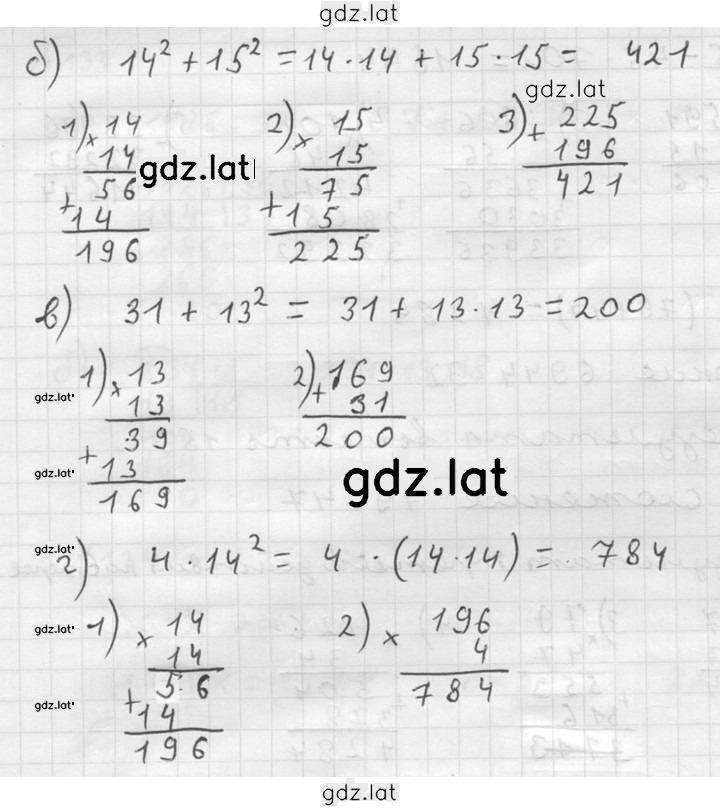 gdz.lat
б) 14² + 15² = 14 · 14 + 15 · 15 = 421
gdz.lat
1) × 14
14
56
+ 14
196
gdz.lat
2) × 15
15
75
+ 15
225
3) + 225
196
421
в) 31 + 13² = 31 + 13 · 13 = 200
1) × 13
gdz.lat
13
39
+ 13
gdz.lat
169
2) + 169
31
200
gdz.lat
gdz.lat
г) 4 · 14² = 4 · (14 · 14) = 784
gdz.lat
1) × 14
14
56
+ 14
gdz.lat
196
2) × 196
4
784
gdz.lat